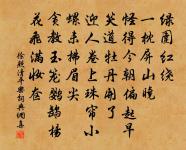 綠圍紅繞
一枕屏山曉
怪得今朝偏起早
笑道牡丹開了
迎人卷上珠簾小
螺未拂眉尖
貪教玉籠鸚鵡楊
花飛滿妝奩
徐 清平樂詞典網